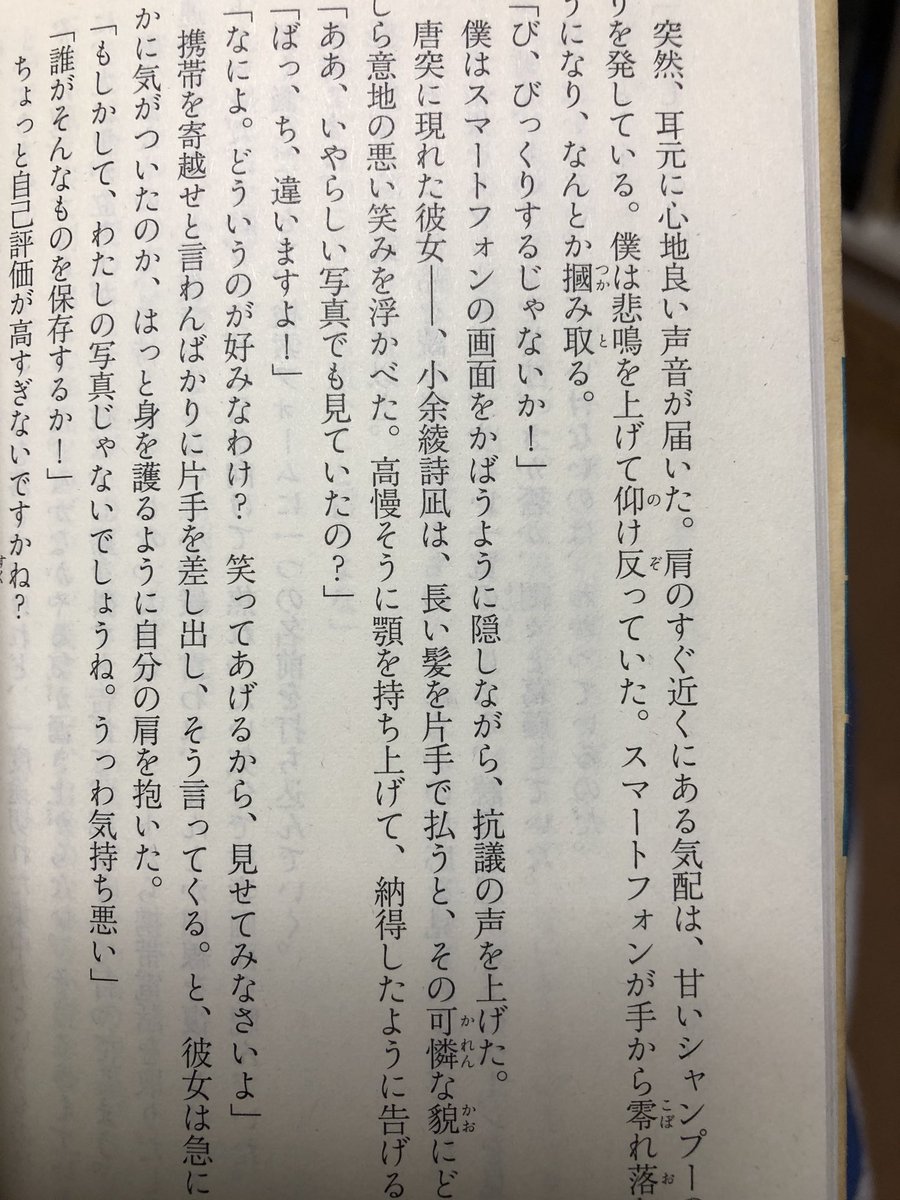 突然、耳元に心地良い声音が届いた。肩のすぐ近くにある気配は、甘いシャンプーの
りを発している。僕は悲鳴を上げて仰け反っていた。スマートフォンが手から零れ落
うになり、なんとか摑み取る。
「び、びっくりするじゃないか！」
僕はスマートフォンの画面をかばうように隠しながら、抗議の声を上げた。
唐突に現れた彼女――、小余綾詩凪は、長い髪を片手で払うと、その可憐な貌にど
しら意地の悪い笑みを浮かべた。高慢そうに顎を持ち上げて、納得したように告げる
「ああ、いやらしい写真でも見ていたの？」
「ばっ、ち、違いますよ！」
「なによ。どういうのが好みなわけ？　笑ってあげるから、見せてみなさいよ」
携帯を寄越せと言わんばかりに片手を差し出し、そう言ってくる。と、彼女は急に
かに気がついたのか、はっと身を護るように自分の肩を抱いた。
「もしかして、わたしの写真じゃないでしょうね。うっわ気持ち悪い」
「誰がそんなものを保存するか！」
ちょっと自己評価が高すぎないですかね？